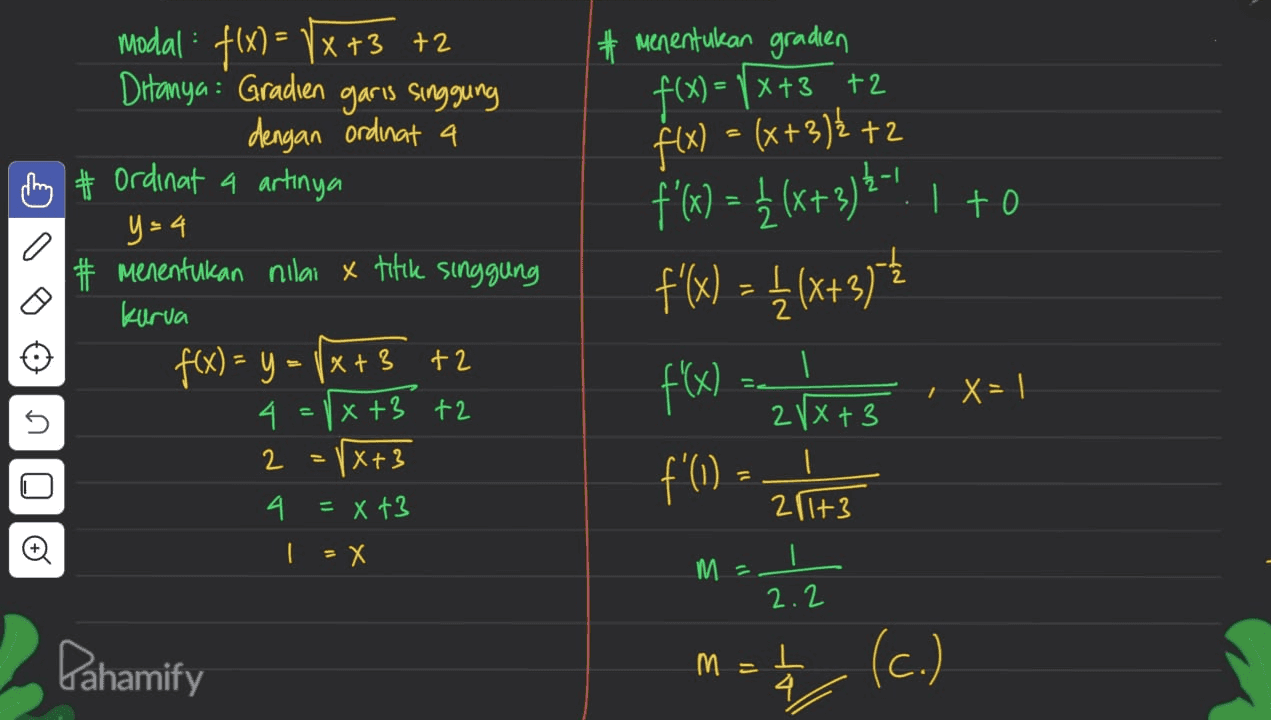 Modal : f(x) = √x+3 +2
Ditanya : Gradien garis singgung
dengan ordinat 4
# Ordinat 4 artinya
y = 4
# menentukan nilai x titik singgung
kurva
f(x) = y = √x+3 +2
4 = √x+3 +2
2 = √x+3
4 = x+3
1 = x
# menentukan gradien
f(x) = √x+3 +2
f(x) = (x+3)^½ +2
f'(x) = ½ (x+3)^(½-1) . 1 + 0
f'(x) = ½ (x+3)^-½
f'(x) = 1 / 2√x+3 , x = 1
f'(1) = 1 / 2√1+3
m = 1 / 2.2
m = 1/4 (c.)
Pahamify